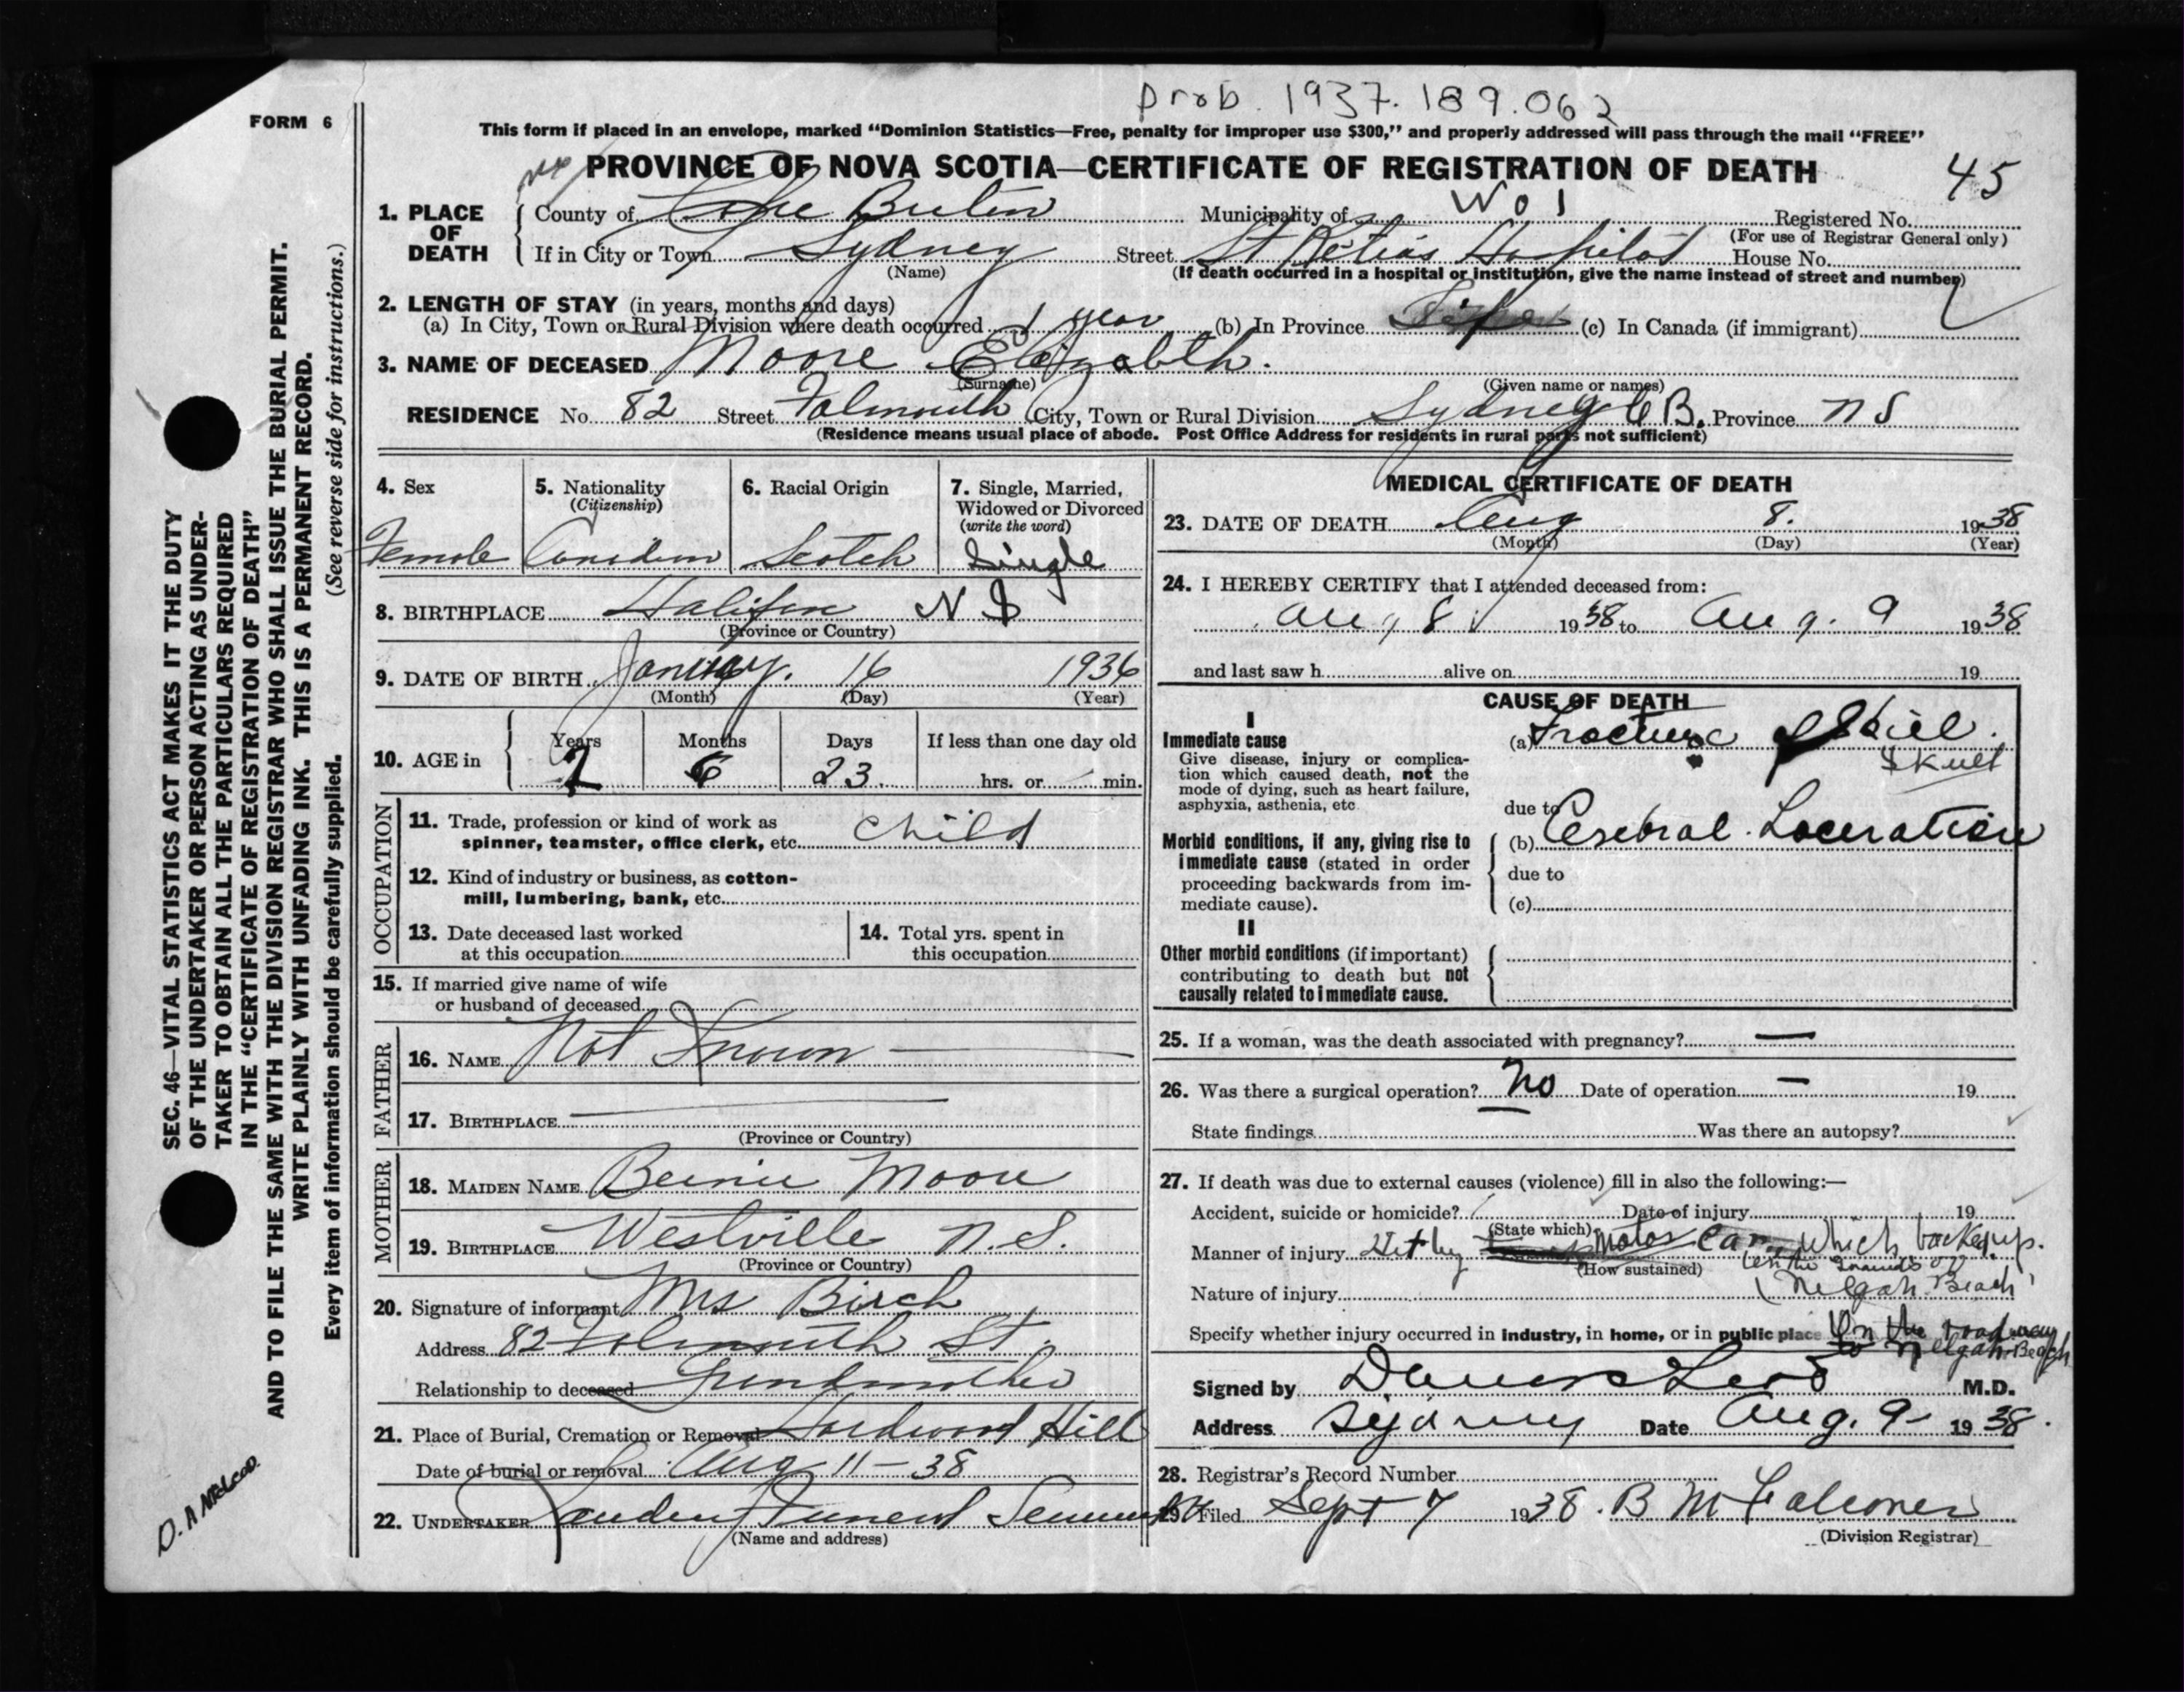 prob. 1937.189.062
FORM 6
This form if placed in an envelope, marked “Dominion Statistics—Free, penalty for improper use $300,” and properly addressed will pass through the mail “FREE”
PROVINCE OF NOVA SCOTIA—CERTIFICATE OF REGISTRATION OF DEATH
45
1. PLACE OF DEATH
County of Cape Breton Municipality of W01 Registered No.
(For use of Registrar General only)
If in City or Town Sydney Street St Ritas Hospital House No.
(Name)
(If death occurred in a hospital or institution, give the name instead of street and number)
2. LENGTH OF STAY (in years, months and days)
(a) In City, Town or Rural Division where death occurred 1 year (b) In Province Life (c) In Canada (if immigrant)
3. NAME OF DECEASED Moore Elizabeth.
(Surname) (Given name or names)
RESIDENCE No. 82 Street Falmouth City, Town or Rural Division Sydney C B. Province N S
(Residence means usual place of abode. Post Office Address for residents in rural parts not sufficient)
4. Sex
Female
5. Nationality
(Citizenship)
Canadian
6. Racial Origin
Scotch
7. Single, Married,
Widowed or Divorced
(write the word)
Single
8. BIRTHPLACE Halifax N S
(Province or Country)
9. DATE OF BIRTH January. 16 1936
(Month) (Day) (Year)
10. AGE in
Years Months Days If less than one day old
2 6 23 hrs. or min.
OCCUPATION
11. Trade, profession or kind of work as
spinner, teamster, office clerk, etc. Child
12. Kind of industry or business, as cotton-
mill, lumbering, bank, etc.
13. Date deceased last worked
at this occupation
14. Total yrs. spent in
this occupation
15. If married give name of wife
or husband of deceased
FATHER
16. NAME Not Known
17. BIRTHPLACE
(Province or Country)
MOTHER
18. MAIDEN NAME Moore
19. BIRTHPLACE Westville N.S.
(Province or Country)
20. Signature of informant Mrs Birch
Address 82 Falmouth St.
Relationship to deceased Grandmother
21. Place of Burial, Cremation or Removal Hardwood Hill
Date of burial or removal Aug 11-38
22. UNDERTAKER Funeral
(Name and address)
MEDICAL CERTIFICATE OF DEATH
23. DATE OF DEATH Aug 8. 1938
(Month) (Day) (Year)
24. I HEREBY CERTIFY that I attended deceased from:
Aug 8 1938 to Aug. 9 1938
and last saw h alive on 19
CAUSE OF DEATH
I
Immediate cause
Give disease, injury or complica-
tion which caused death, not the
mode of dying, such as heart failure,
asphyxia, asthenia, etc
(a) Fracture of
Skull
due to
Morbid conditions, if any, giving rise to
immediate cause (stated in order
proceeding backwards from im-
mediate cause).
(b) Cerebral Laceration
due to
(c)
II
Other morbid conditions (if important)
contributing to death but not
causally related to immediate cause.
25. If a woman, was the death associated with pregnancy? —
26. Was there a surgical operation? No Date of operation — 19
State findings Was there an autopsy?
27. If death was due to external causes (violence) fill in also the following:—
Accident, suicide or homicide? Date of injury 19
(State which)
Manner of injury Hit by Motor Car which backed up.
(How sustained)
on the grounds of
Nature of injury (Nelgah Beach)
Specify whether injury occurred in industry, in home, or in public place On the roadway
to Nelgah Beach
Signed by M.D.
Address Sydney Date Aug. 9- 1938.
28. Registrar's Record Number
29. Filed Sept 7 1938. B M Falconer
(Division Registrar)
SEC. 46—VITAL STATISTICS ACT MAKES IT THE DUTY
OF THE UNDERTAKER OR PERSON ACTING AS UNDER-
TAKER TO OBTAIN ALL THE PARTICULARS REQUIRED
IN THE “CERTIFICATE OF REGISTRATION OF DEATH”
AND TO FILE THE SAME WITH THE DIVISION REGISTRAR WHO SHALL ISSUE THE BURIAL PERMIT.
WRITE PLAINLY WITH UNFADING INK. THIS IS A PERMANENT RECORD.
Every item of information should be carefully supplied. (See reverse side for instructions.)
D. A McLeod